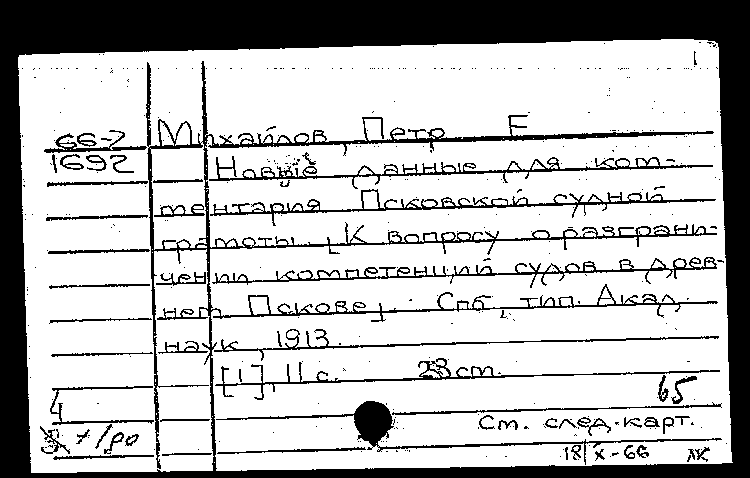 1
66-7 Михайлов, Петр Е
1692 Новые данные для ком-
ментария Псковской судной
грамоты [К вопросу о разграни-
чении компетенций судов в древ-
нем Пскове]. Спб, тип. Акад.
наук, 1913.
[1], 11 с. 23 см.
65
4
Ст. след. карт.
18 X-66